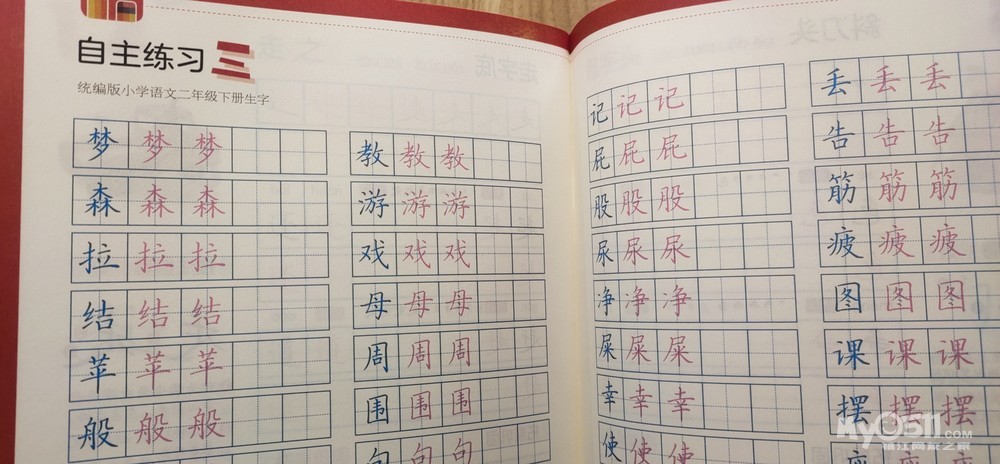 自主练习 三
统编版小学语文二年级下册生字
梦 梦 梦
森 森 森
拉 拉 拉
结 结 结
苹 苹 苹
般 般 般
教 教 教
游 游 游
戏 戏 戏
母 母 母
周 周 周
围 围 围
句 句 句
记 记 记
屁 屁 屁
股 股 股
尿 尿 尿
净 净 净
屎 屎 屎
幸 幸 幸
使 使 使
斜刀头
走字底
丢 丢 丢
告 告 告
筋 筋 筋
疲 疲 疲
图 图 图
课 课 课
摆 摆 摆
座
MY0511.COM